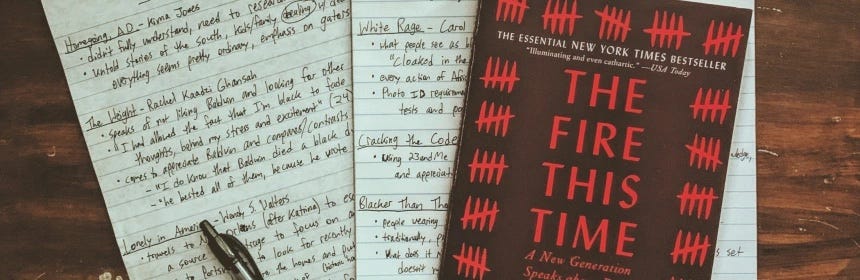 Homegoing, AD - Kima Jones
• didn't fully understand, need to resea
• Untold stories of the south, kids/family dealing w/ dea
everything seems pretty ordinary, emphasis on
The Weight - Rachel Kaadzi Ghansah
• speaks of not liking Baldwin and looking for other
• "I had allowed the fact that I'm black to fade
thoughts, behind my stress and excitement" (24
• comes to appreciate Baldwin and compares/contrasts
- "I do know that Baldwin died a black d
- "he bested all of them, because he wrote
Lonely in America - Wendy S. Walters
• travels to (after Katrina) to es
a source to focus on a
to look for recently
the homes and
White Rage - Carol
• what people see as b
"Cloaked in the
• every action of Afri
• Photo ID requirem
tests and po
Cracking the Code
• Using 23andMe
and apprecia
Blacher Than Tho
• people wearing
• traditionally, p
• What does it
doesn't
THE ESSENTIAL NEW YORK TIMES BESTSELLER
"Illuminating and even cathartic." —USA Today
THE
FIRE
THIS
TIME
A New Generation
Speaks ab
s set